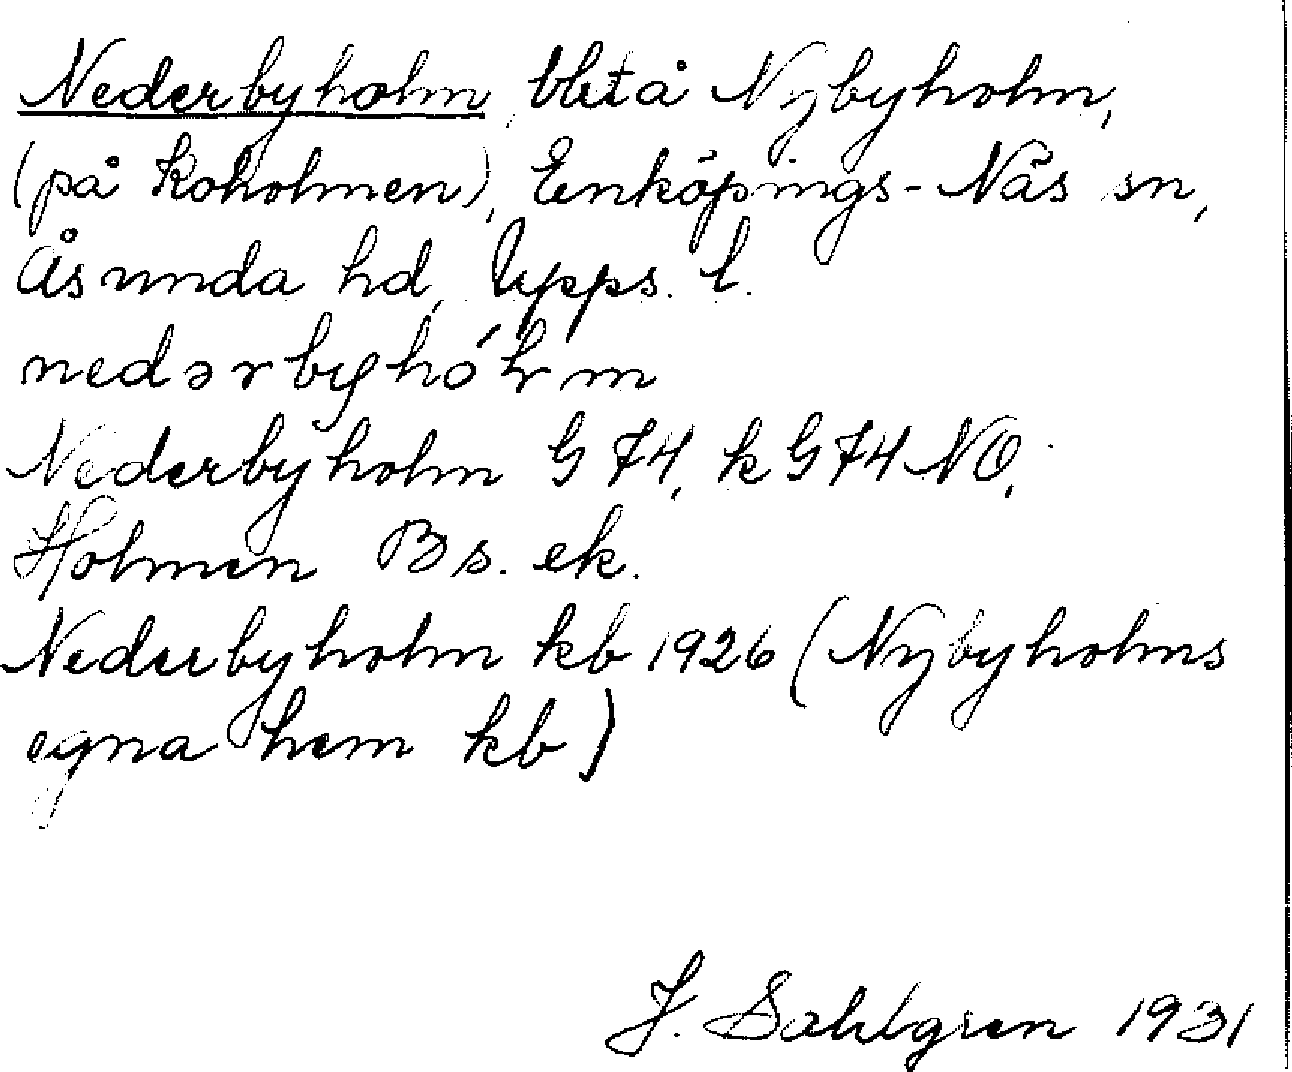 Nederbyholm, bbet å Nybyholm,
(på Koholmen), Enköpings-Näs sn,
Åsunda hd, Upps. l.
nedərbyhó
Nederbyholm G 74, k G 74 NO,
Holmen Bs. ek.
Nederbyholm kb 1926 (Nybyholms
egna hem kb)
J. Sahlgren 1931